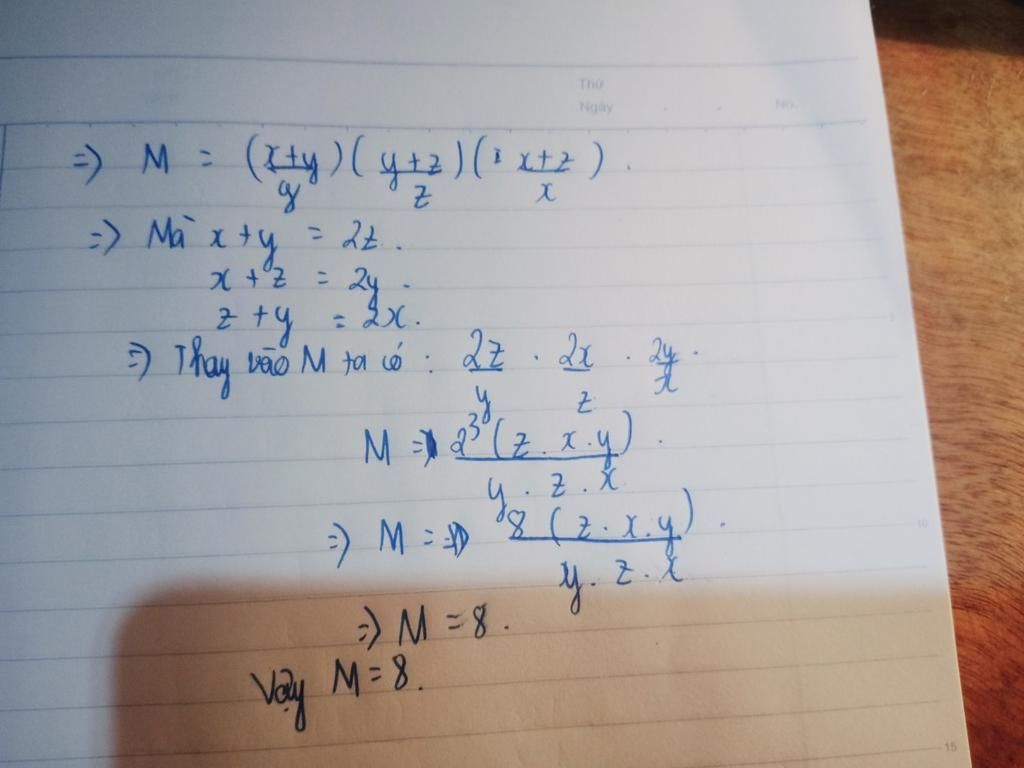 Thứ
Ngày . . No.
=> M = (x+y/y)(y+z/z)(x+z/x).
=> Mà x+y = 2z.
x+z = 2y.
z+y = 2x.
=> Thay vào M ta có: 2z/y . 2x/z . 2y/x.
M = 2³(z.x.y)/y.z.x.
=> M = 8(z.x.y)/y.z.x.
=> M = 8.
Vậy M = 8.
10
15